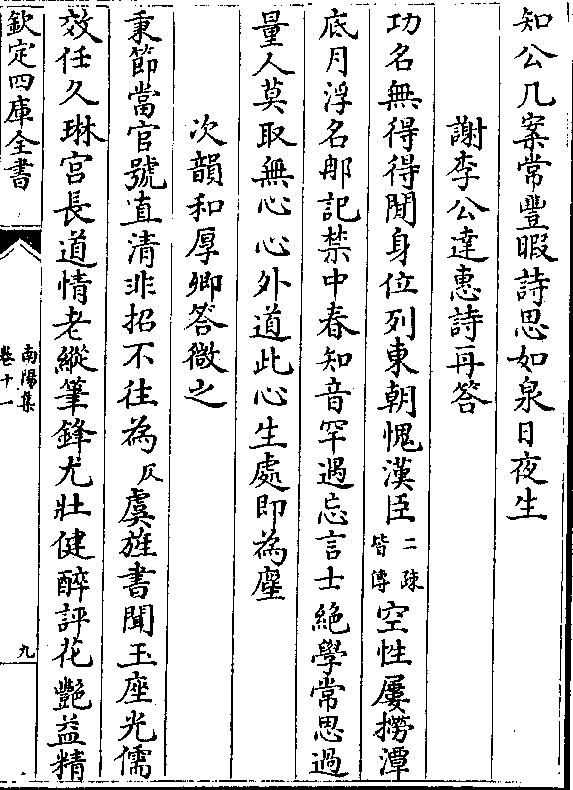 知公几案常豐暇詩思如泉日夜生
謝李公達惠詩再答
功名無得得閒身位列東朝愧漢臣二疎皆傅空性屢撈潭
底月浮名那記禁中春知音罕遇忘言士絶學常思過
量人莫取無心心外道此心生處即為塵
次韻和厚卿答微之
秉節當官號直清非招不徃為仄虞旌書聞玉座光儒
效任久琳宫長道情老縱筆鋒尤壯健醉評花豔益精
欽定四庫全書
南陽集
卷十一
九